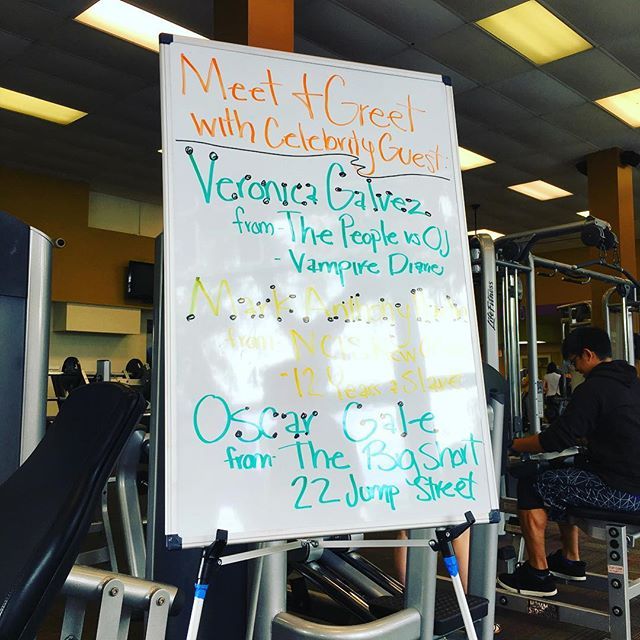 Meet & Greet
with Celebrity Guest:
Veronica Galvez
from - The People vs OJ
- Vampire Diaries
Mark Anthony
from - NCIS New
- 12 Years a Slave
Oscar Gale
from - The Big Short
22 Jump Street
Life Fitness